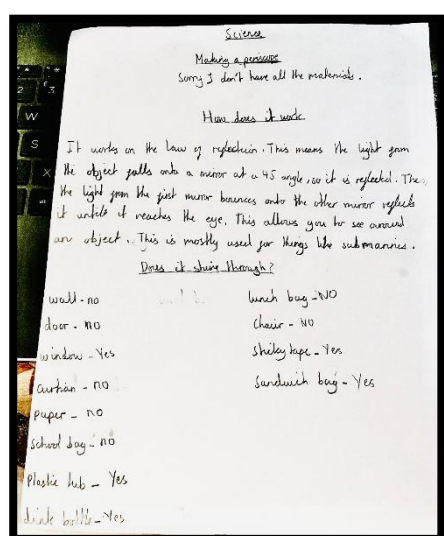 Science
Making a periscope
Sorry I don't have all the materials.
How does it work
It works on the Law of reflection. This means the light from
the object falls onto a mirror at a 45 angle, so it is reflected. Then,
the light from the first mirror bounces onto the other mirror reflects
it until it reaches the eye. This allows you to see around
an object. This is mostly used for things like submarines.
Does it shine through?
wall - no
door - no
window - Yes
curtian - no
paper - no
school bag - no
Plastic tub - Yes
drink bottle - Yes
lunch bag - NO
Chair - NO
Stikeytape - Yes
Sandwich bag - Yes
2
3
W
S
X